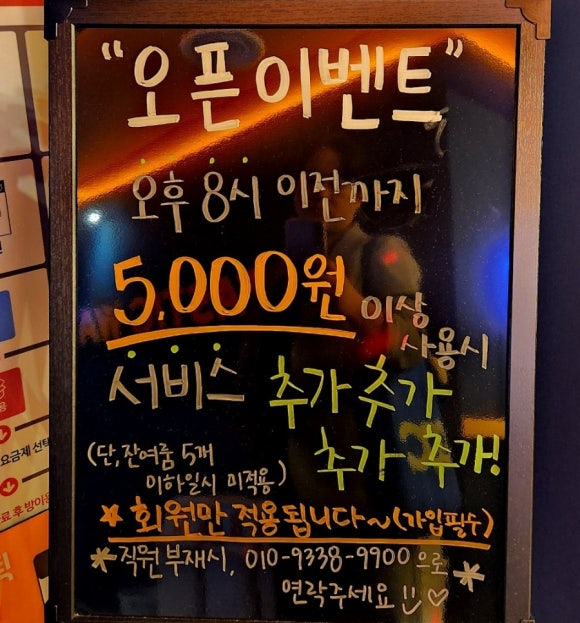 "오픈이벤트"
오후 8시 이전까지
5,000원 이상
사용시
서비스 추가 추가
추가 추가!
(단, 잔여룸 5개
이하일시 미적용)
* 회원만 적용됩니다~(가입필수)
*직원 부재시, 010-9338-9900 으로
연락주세요 *
요금제 선택
료 후 방이용